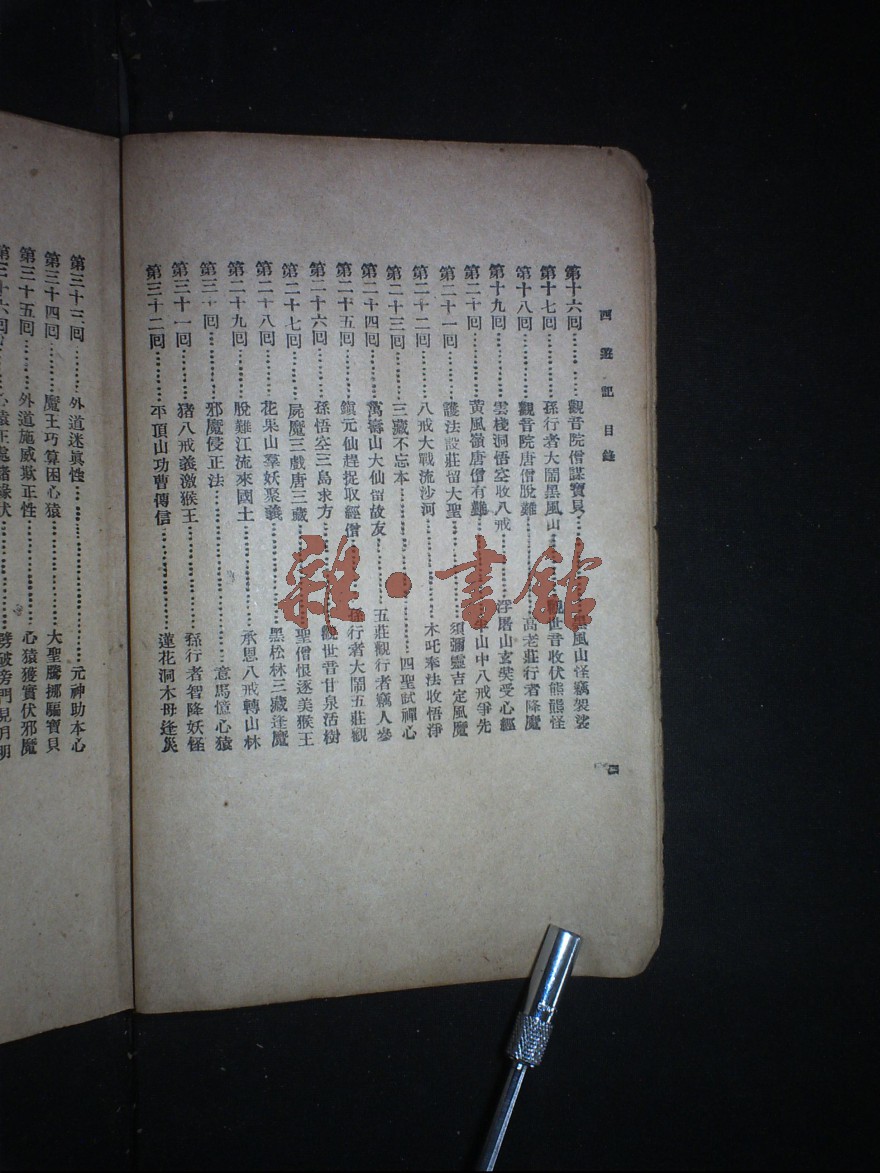 西遊記 目錄
第十六回………… 觀音院僧謀寶貝…………黑風山怪竊袈裟
第十七回………… 孫行者大鬧黑風山…………觀世音收伏熊熊怪
第十八回………… 觀音院唐僧脫難…………高老莊行者降魔
第十九回………… 雲棧洞悟空收八戒…………浮屠山玄奘受心經
第二十回………… 黃風嶺唐僧有難…………半山中八戒爭先
第二十一回………… 護法設莊留大聖…………須彌靈吉定風魔
第二十二回………… 八戒大戰流沙河…………木吒奉法收悟淨
第二十三回………… 三藏不忘本…………四聖試禪心
第二十四回………… 萬壽山大仙留故友…………五莊觀行者竊人參
第二十五回………… 鎮元仙趕捉取經僧…………孫行者大鬧五莊觀
第二十六回………… 孫悟空三島求方…………觀世音甘泉活樹
第二十七回………… 屍魔三戲唐三藏…………聖僧恨逐美猴王
第二十八回………… 花果山羣妖聚義…………黑松林三藏逢魔
第二十九回………… 脫難江流來國土…………承恩八戒轉山林
第三十回………… 邪魔侵正法…………意馬憶心猿
第三十一回………… 猪八戒義激猴王…………孫行者智降妖怪
第三十二回………… 平頂山功曹傳信…………蓮花洞木母逢災
第三十三回………… 外道迷眞性…………元神助本心
第三十四回………… 魔王巧算困心猿…………大聖騰挪騙寶貝
第三十五回………… 外道施威欺正性…………心猿獲寶伏邪魔
第三十六回………… 心猿正處諸緣伏…………劈破旁門見月明
雜·書館